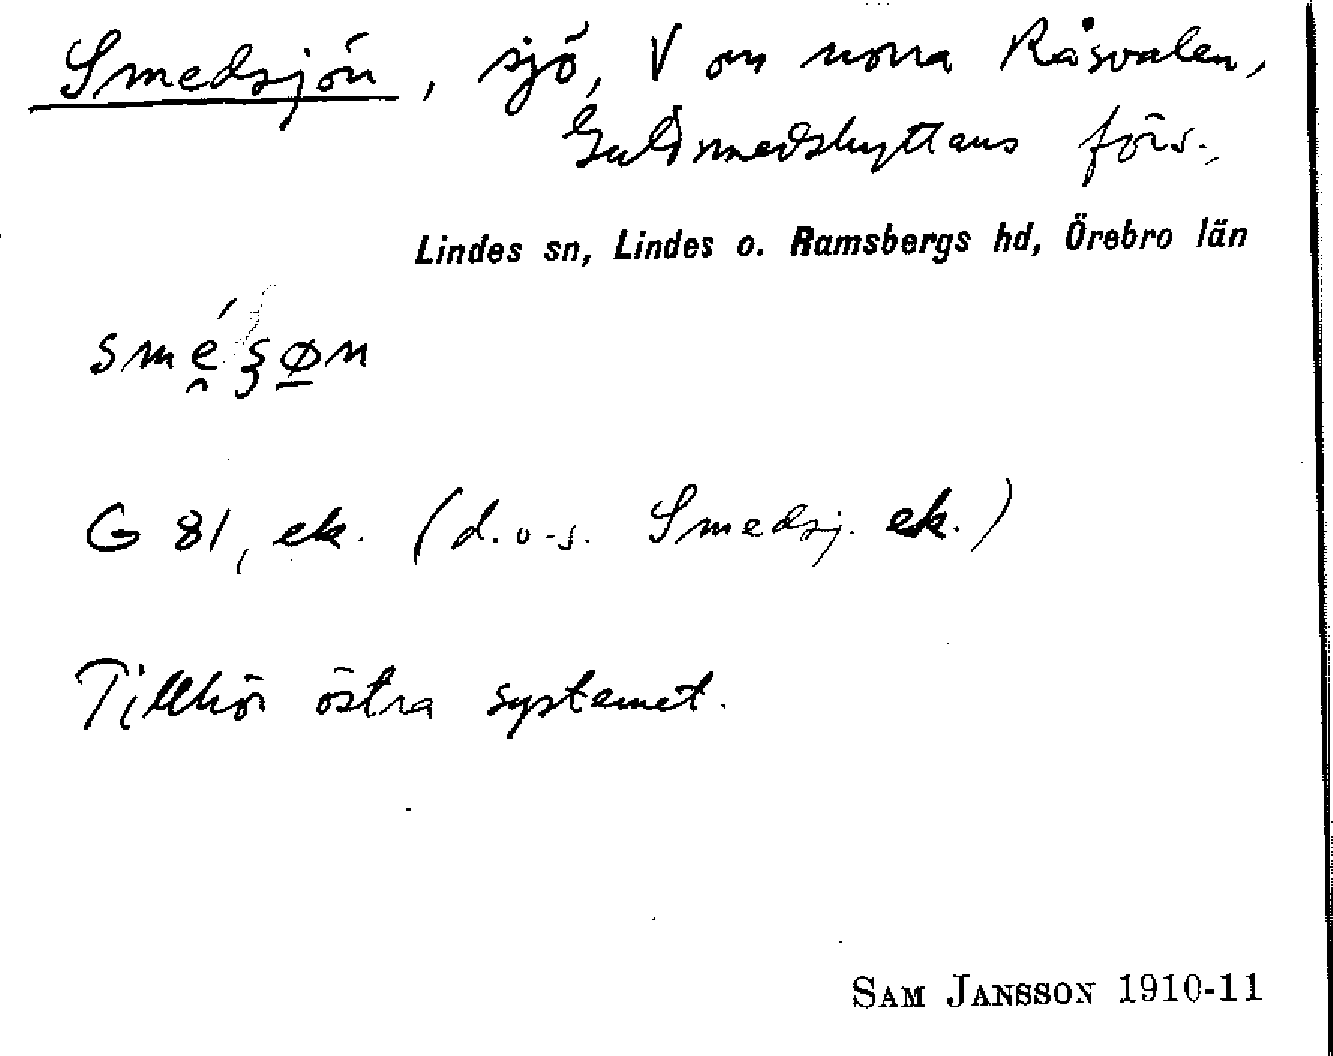 Smedsjön, sjö, V om norra Råsvalen,
Guldsmedshyttans förs.,
Lindes sn, Lindes o. Ramsbergs hd, Örebro län
G 81, ek. (d.v.s. Smedsj. ek.)
Tillhör östra systemet.
SAM JANSSON 1910-11